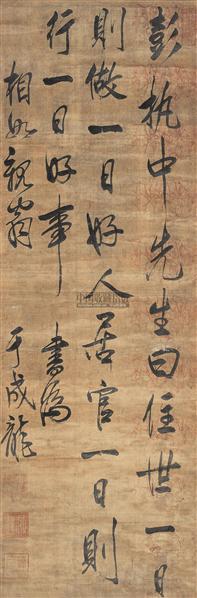 彭执中先生曰住世一日
則做一日好人居官一日則
行一日好事 書爲
相如親翁 于成龍